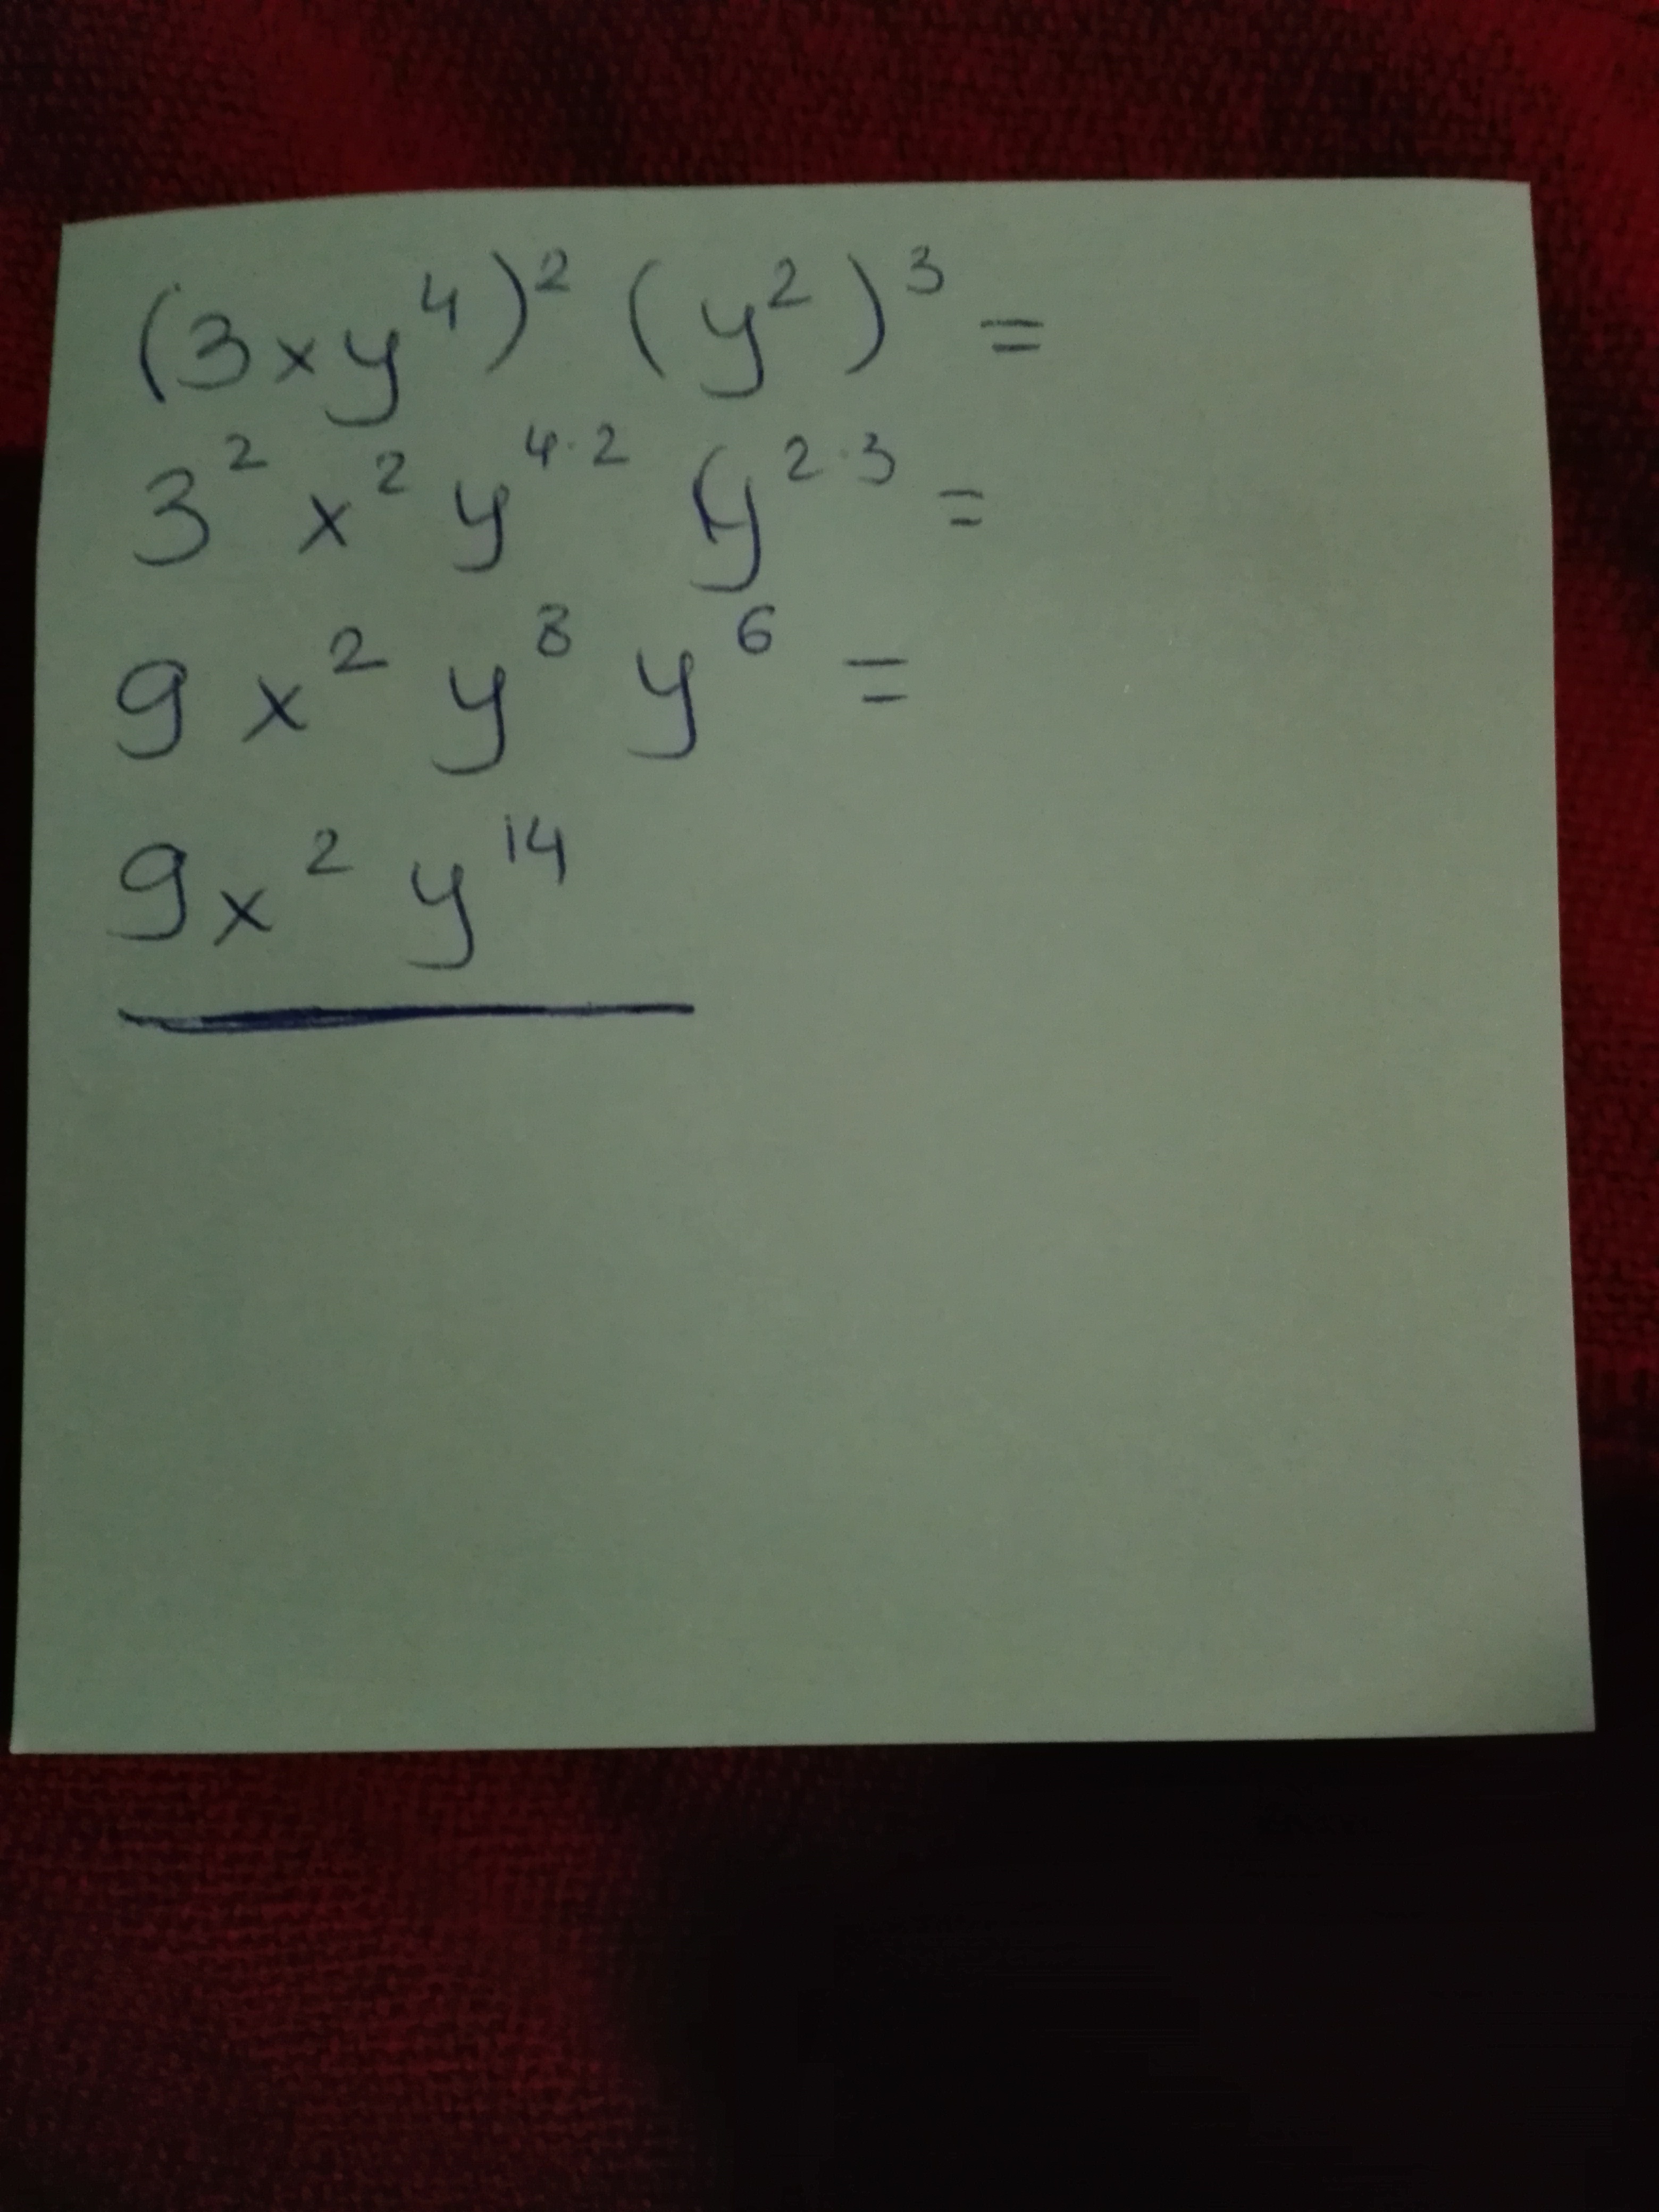 (3xy⁴)² (y²)³ =
3² x² y⁴·² y²·³ =
9 x² y⁸ y⁶ =
9x² y¹⁴